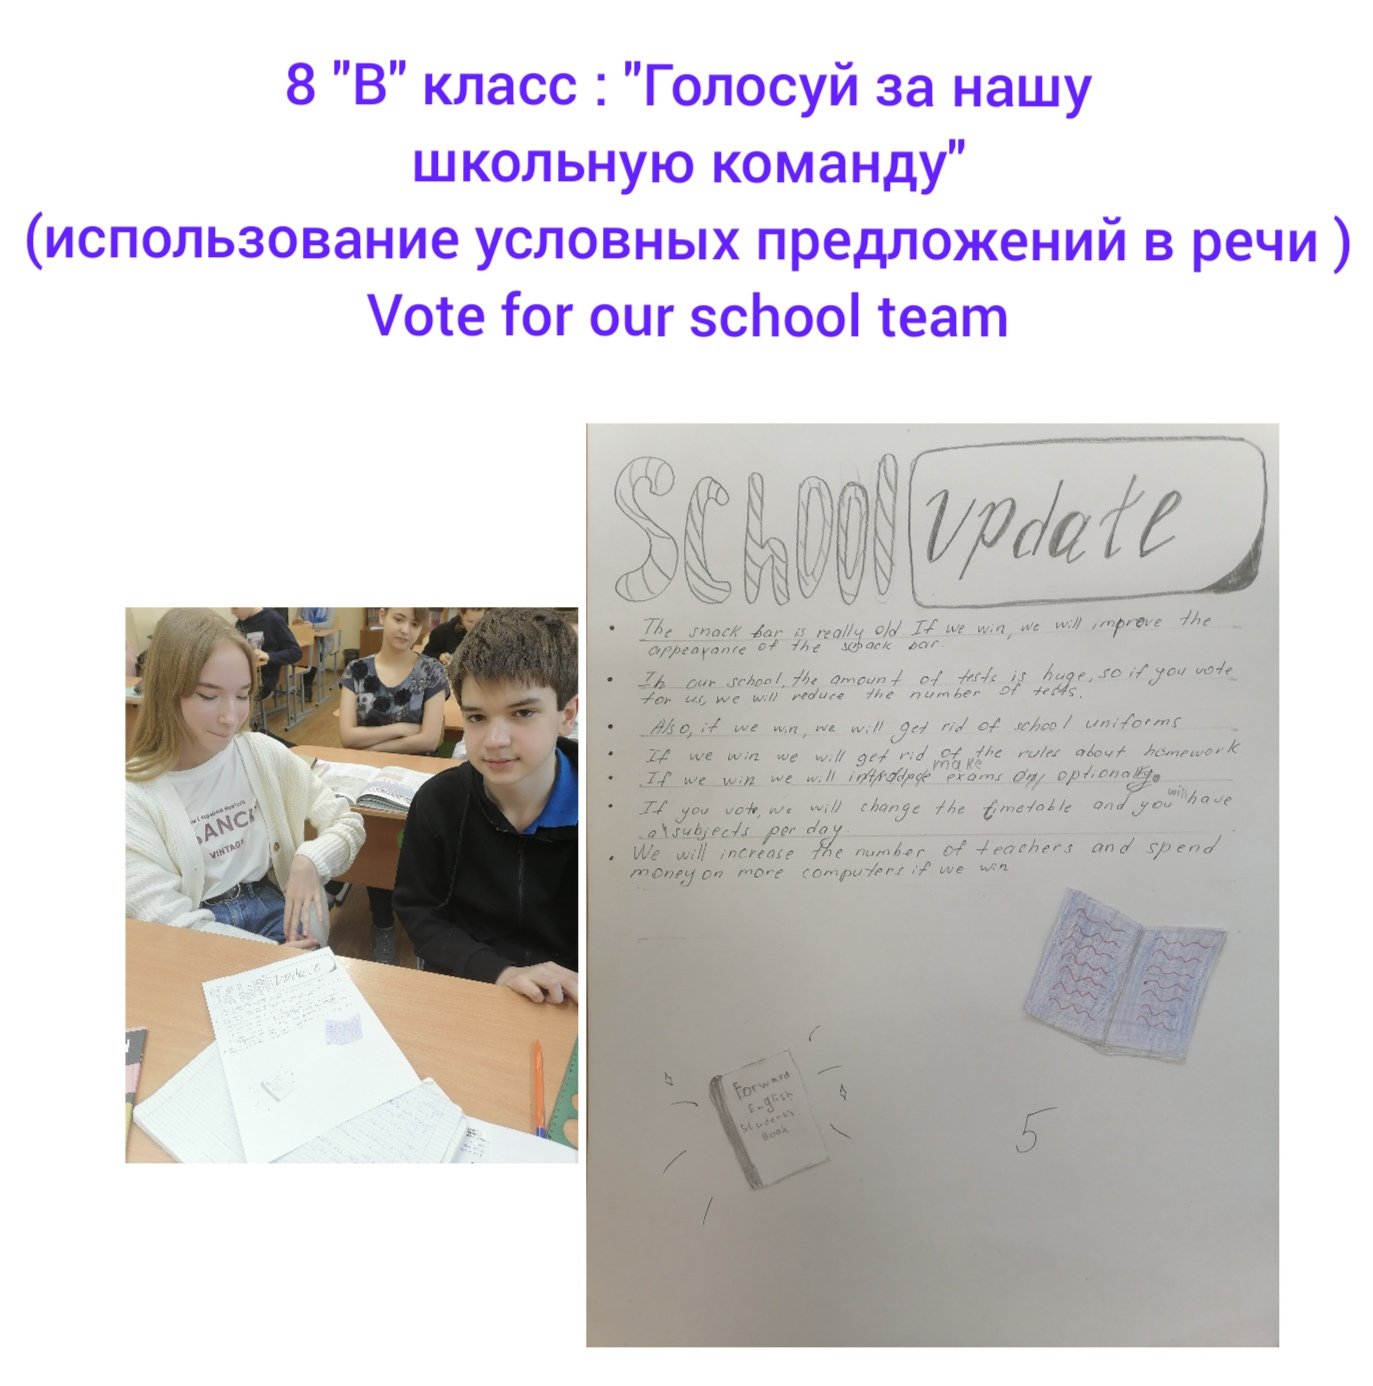 8 "В" класс : "Голосуй за нашу
школьную команду"
(использование условных предложений в речи )
Vote for our school team
School update
The snack bar is really old. If we win, we will improve the
appearance of the snack bar.
In our school, the amount of tests is huge, so if you vote
for us, we will reduce the number of tests.
Also, if we win, we will get rid of school uniforms
If we win we will get rid of the rules about homework
make
If we win we will exams optional
will
If you vote, we will change the timetable and you have
subjects per day.
We will increase the number of teachers and spend
money on more computers if we win
Forward
English
Student's
Book
5
SANCA
VINTAGE
School update